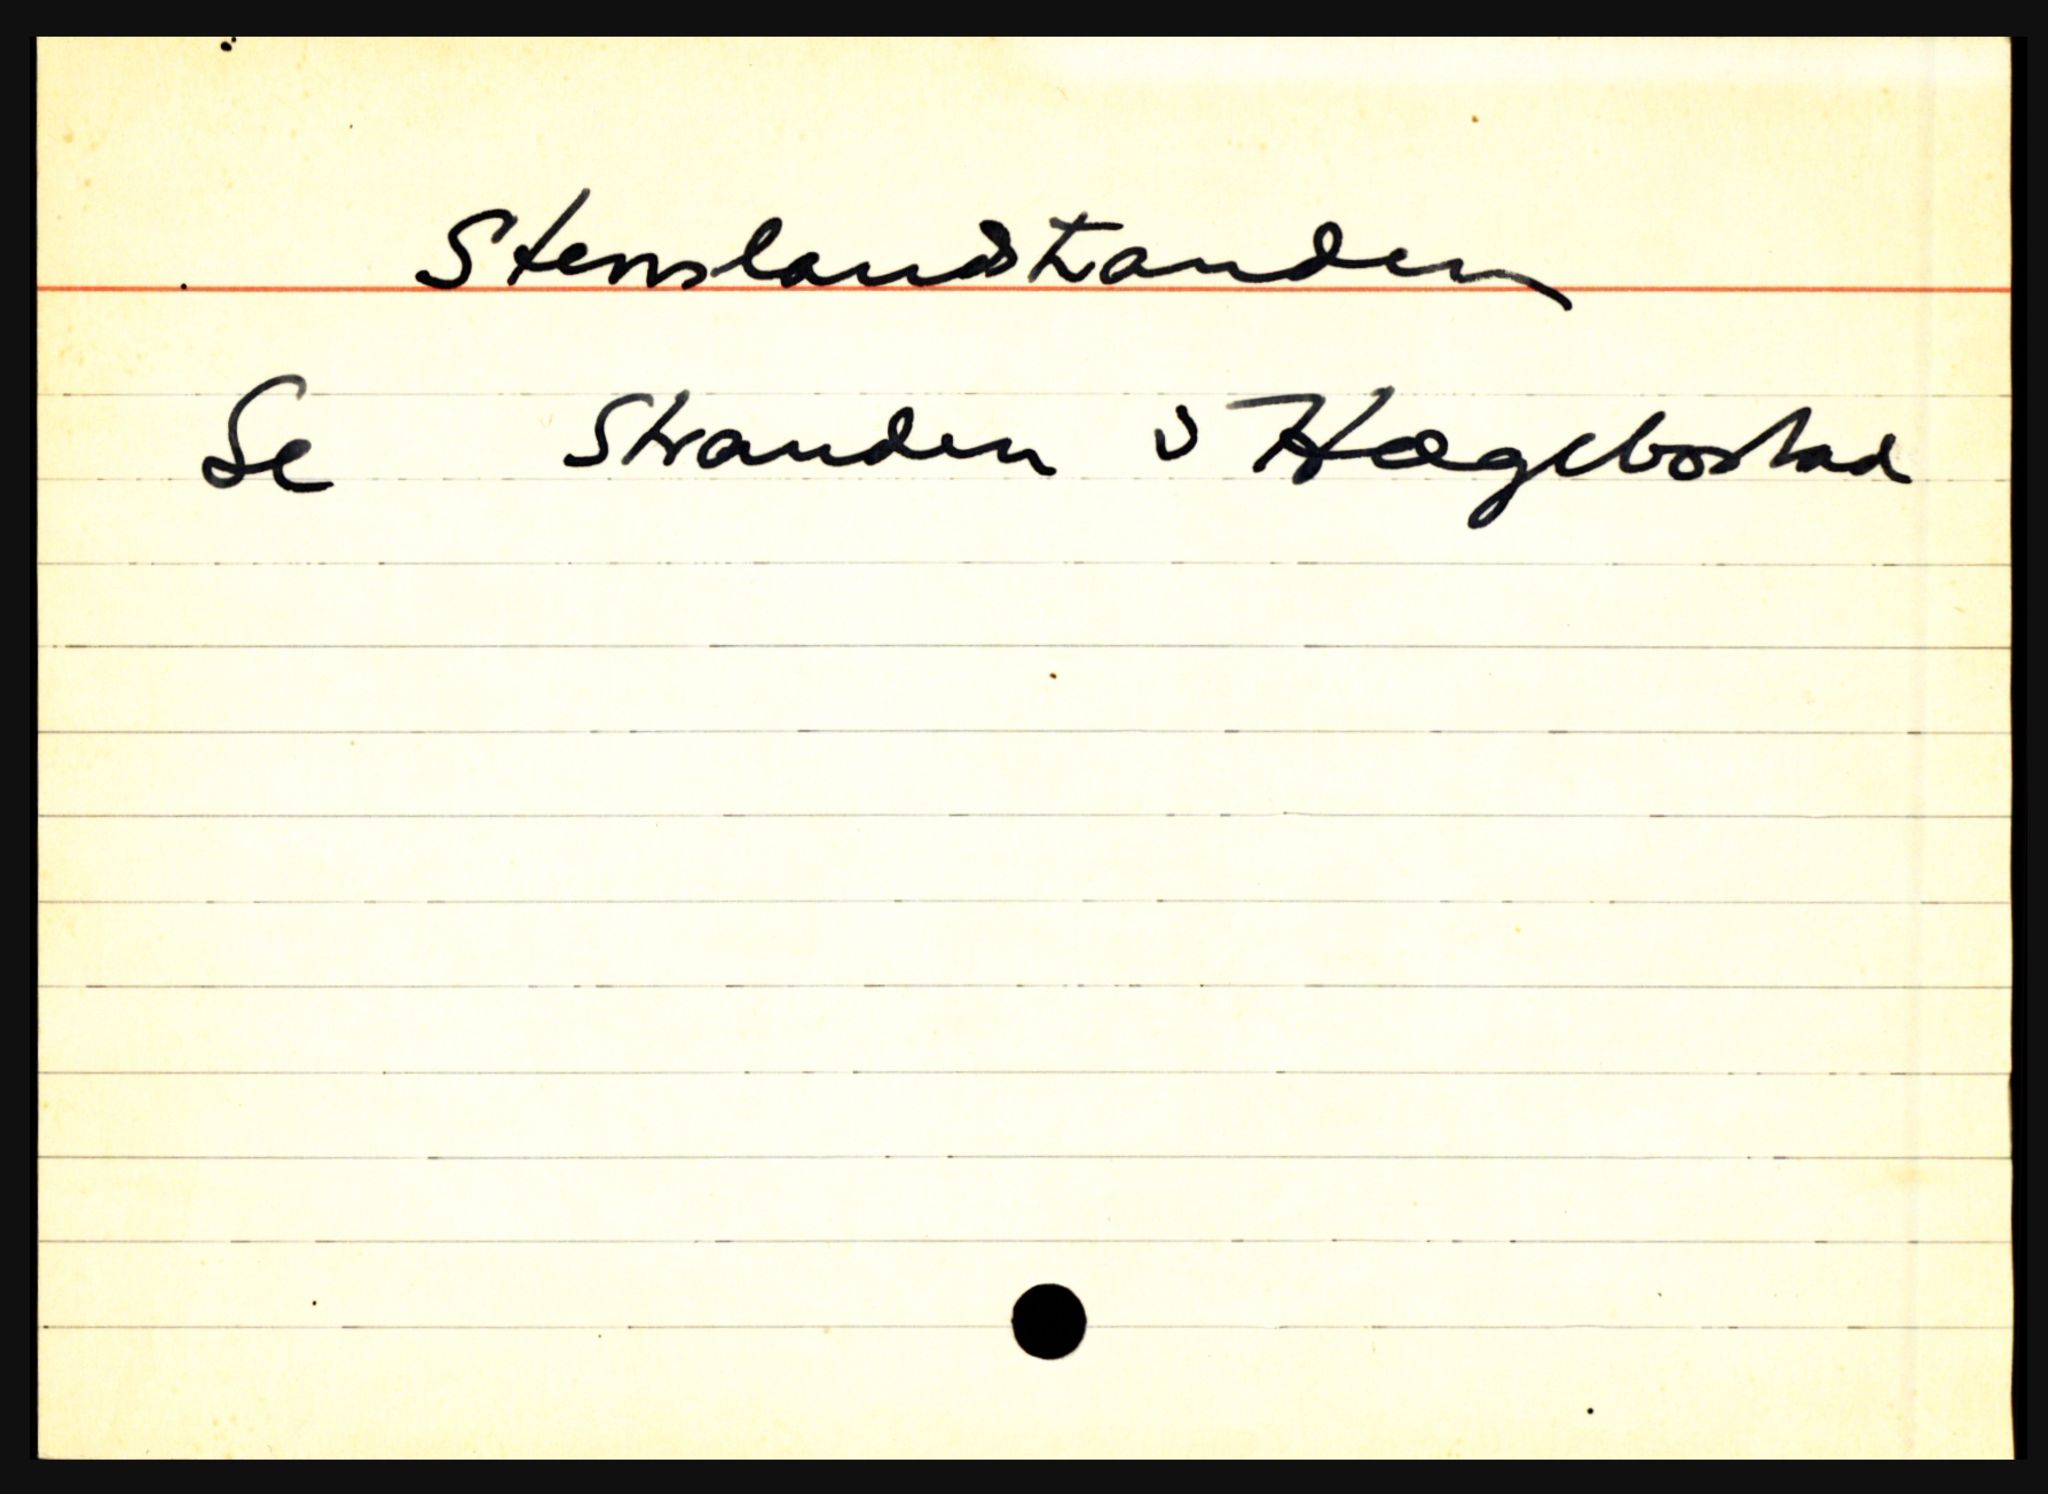 Stenslandstranden
Se Stranden i Hægebostad